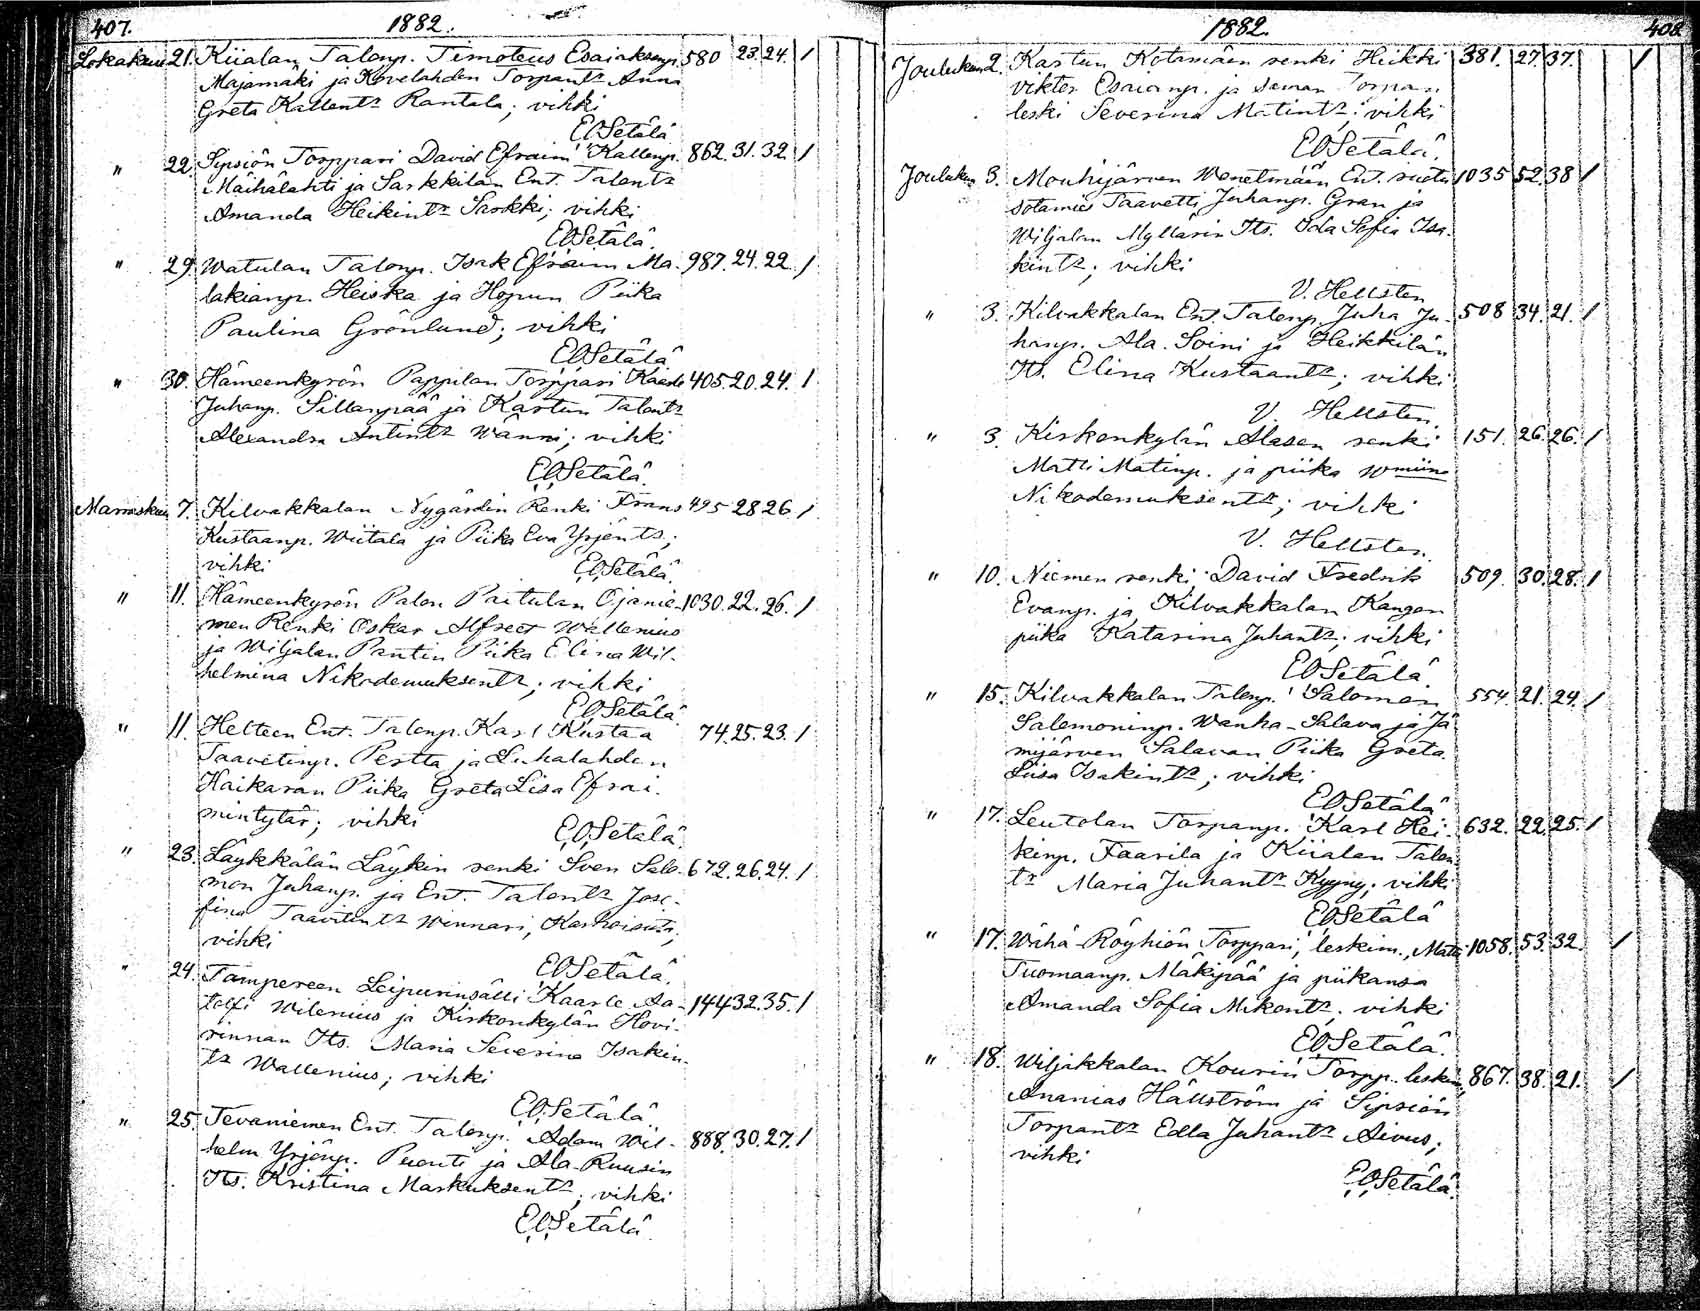 407.
1882.
Lokakuu 21. Kiialan Talonp. Timoteus Esaiaksenp. 580 23. 24. /
Majamäki ja Kovelahden Torpant:r Anna
Greta Kallent:r Rantala; vihki
EOSetälä
" 22. Sipsiön Torppari David Efraim Kallenp. 862. 31. 32. /
Mäihälahti ja Sarkkilan Ent. Talont:r
Amanda Heikint:r Sarkki; vihki
EOSetälä.
" 29. Watulan Talonp. Isak Efraim Ma- 987. 24. 22. /
lakianp. Heiska ja Hopun Piika
Paulina Grönlund; vihki
EOSetälä
" 30. Hämeenkyrön Pappilan Torppari Kaarle 405. 20. 24. /
Juhanp. Sillanpää ja Kartun Talont:r
Alexandra Antint:r Wänni; vihki
EOSetälä.
Marraskuu 7. Kilvakkalan Nygårdin Renki Frans 495 28 26 /
Kustaanp. Wiitala ja Piika Eva Yrjönt:r;
vihki
EOSetälä.
" 11. Hämeenkyrön Palon Paitulan Ojanie- 1030. 22. 26. /
men Renki Oskar Alfred Wallenius
ja Wiljalan Pantin Piika Elina Wil-
helmina Nikodemuksent:r; vihki
EOSetälä.
" 11. Helteen Ent. Talonp. Karl Kustaa 74. 25. 23. /
Taavetinp. Pertta ja Luhalahden
Haikaran Piika Greta Lisa Efrai-
mintytär; vihki
EOSetälä.
" 23. Läykkälän Läykin renki Sven Salo- 672. 26. 24. /
mon Juhanp. ja Ent. Talont:r Jose-
fina Taavitint:r Winnari,
vihki
EOSetälä.
" 24. Tampereen Leipurinsälli Kaarle Aa- 144 32. 35. /
tolfi Wilenius ja Kirkonkylän Hovi-
rinnan Its. Maria Severina Isakin-
t:r Wallenius; vihki
EOSetälä
" 25. Tevaniemen Ent. Talonp. Adam Wil- 888. 30. 27. /
helm Yrjönp. Puonti ja Ala-Ruusin
Its. Kristina Markuksent:r; vihki
EOSetälä
1882.
408.
Joulukuu 2. Kartun Kotamäen renki Heikki 381. 27. 37. /
Viktor Esaianp. ja saman Torpan
leski Severina Matint:r; vihki
EOSetälä.
Joulukuu 3. Mouhijärven Wenetmäen Ent. ruotu 1035 52. 38 /
sotamies Taavetti Juhanp. Gran ja
Wiljalan Myllärin Its. Ida Sofia Isa-
kint:r; vihki
V. Hellsten
" 3. Kilvakkalan Ent. Talonp. Juha Ju- 508 34. 21. /
hanp. Ala-Soini ja Heikkilän
Its. Elina Kustaant:r; vihki
V. Hellsten.
" 3. Kirkonkylän Alasen renki 151. 26. 26. /
Matti Matinp. ja piika Wmiina
Nikodemuksent:r; vihki
V. Hellsten.
" 10. Niemen renki David Fredrik 509. 30. 28. /
Evanp. ja Kilvakkalan Kangon
piika Katarina Juhant:r; vihki
EOSetälä.
" 15. Kilvakkalan Talonp. Salomon 554. 21. 24. /
Salomoninp. Wanha-Salava ja Jä-
mijärven Salavan Piika Greta
Liisa Isakint:r; vihki
EOSetälä
" 17. Leutolan Torpanp. Karl Hei- 632. 22. 25. /
kinp. Faarila ja Kiialan Talon-
t:r Maria Juhant:r Kyyny; vihki
EOSetälä
" 17. Wähä-Röyhiön Torppari, leskim., Matti 1058. 53. 32. /
Tuomaanp. Mäkipää ja piikansa
Amanda Sofia Mikont:r; vihki
EOSetälä.
" 18. Wiljakkalan Kourin Torpp. leskim. 867. 38. 21. /
Ananias Hällström ja Sipsiön
Torpant:r Edla Juhant:r Aivus;
vihki
EOSetälä.